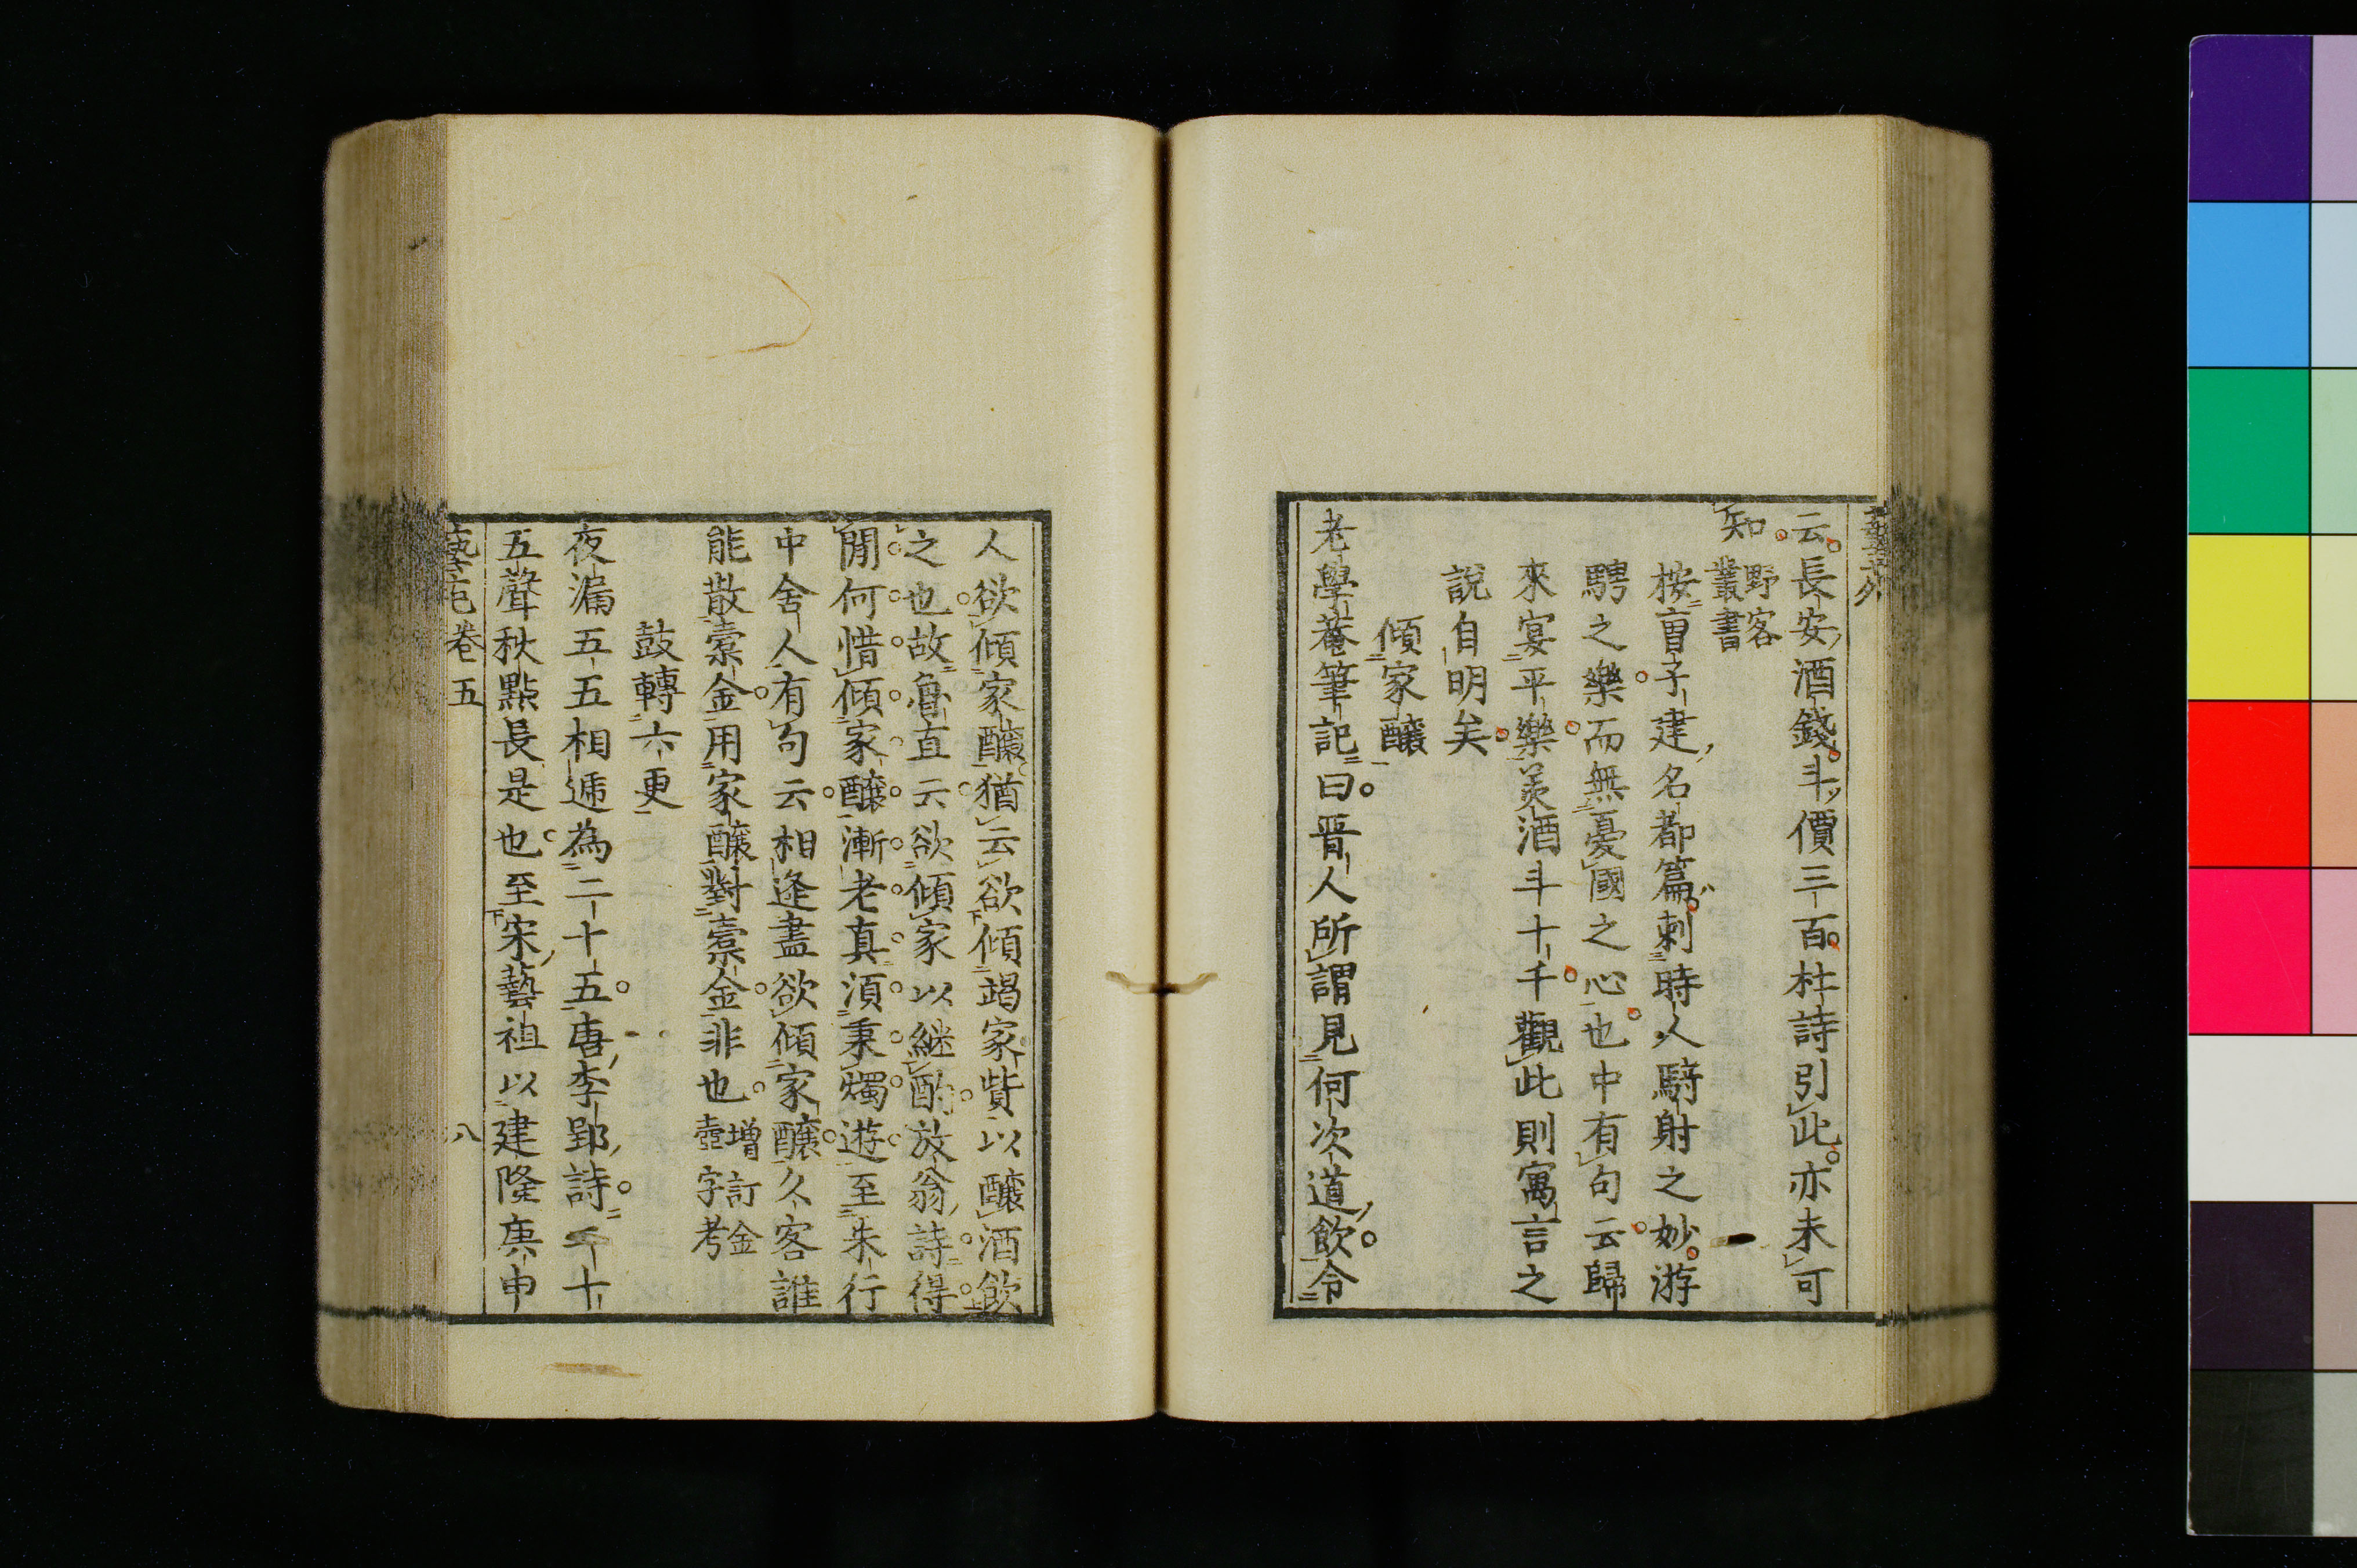 云長安酒錢斗價三百杜詩引此亦未可
知野客叢書
桉曺子建名都篇刺時人騎射之妙游
騁之樂而無憂國之心也中有句云歸
來宴平樂羙酒斗十千觀此則寓言之
說自明矣
傾家釀
老學菴筆記曰晋人所謂見何次道飲令
人欲傾家釀猶云欲傾竭家貲以釀酒飲
之也故魯直云欲傾家以継酌放翁詩得
閒何惜傾家釀漸老真須秉燭遊至朱行
中舍人有句云相逢盡欲傾家釀久客誰
能散槖金用家釀對槖金非也增訂金壺字考
鼓轉六更
夜漏五五相遞為二十五唐李郢詩二十
五聲秋點長是也至宋藝祖以建隆庚申
藝苑卷五 八